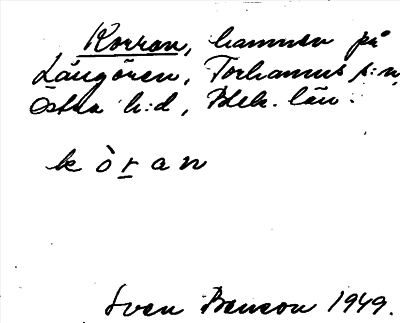 Korran, hamnen på
Långören, Torhamns s:n,
Östra h:d, Blek. län.
k ò r a n
Sven Benson 1949.